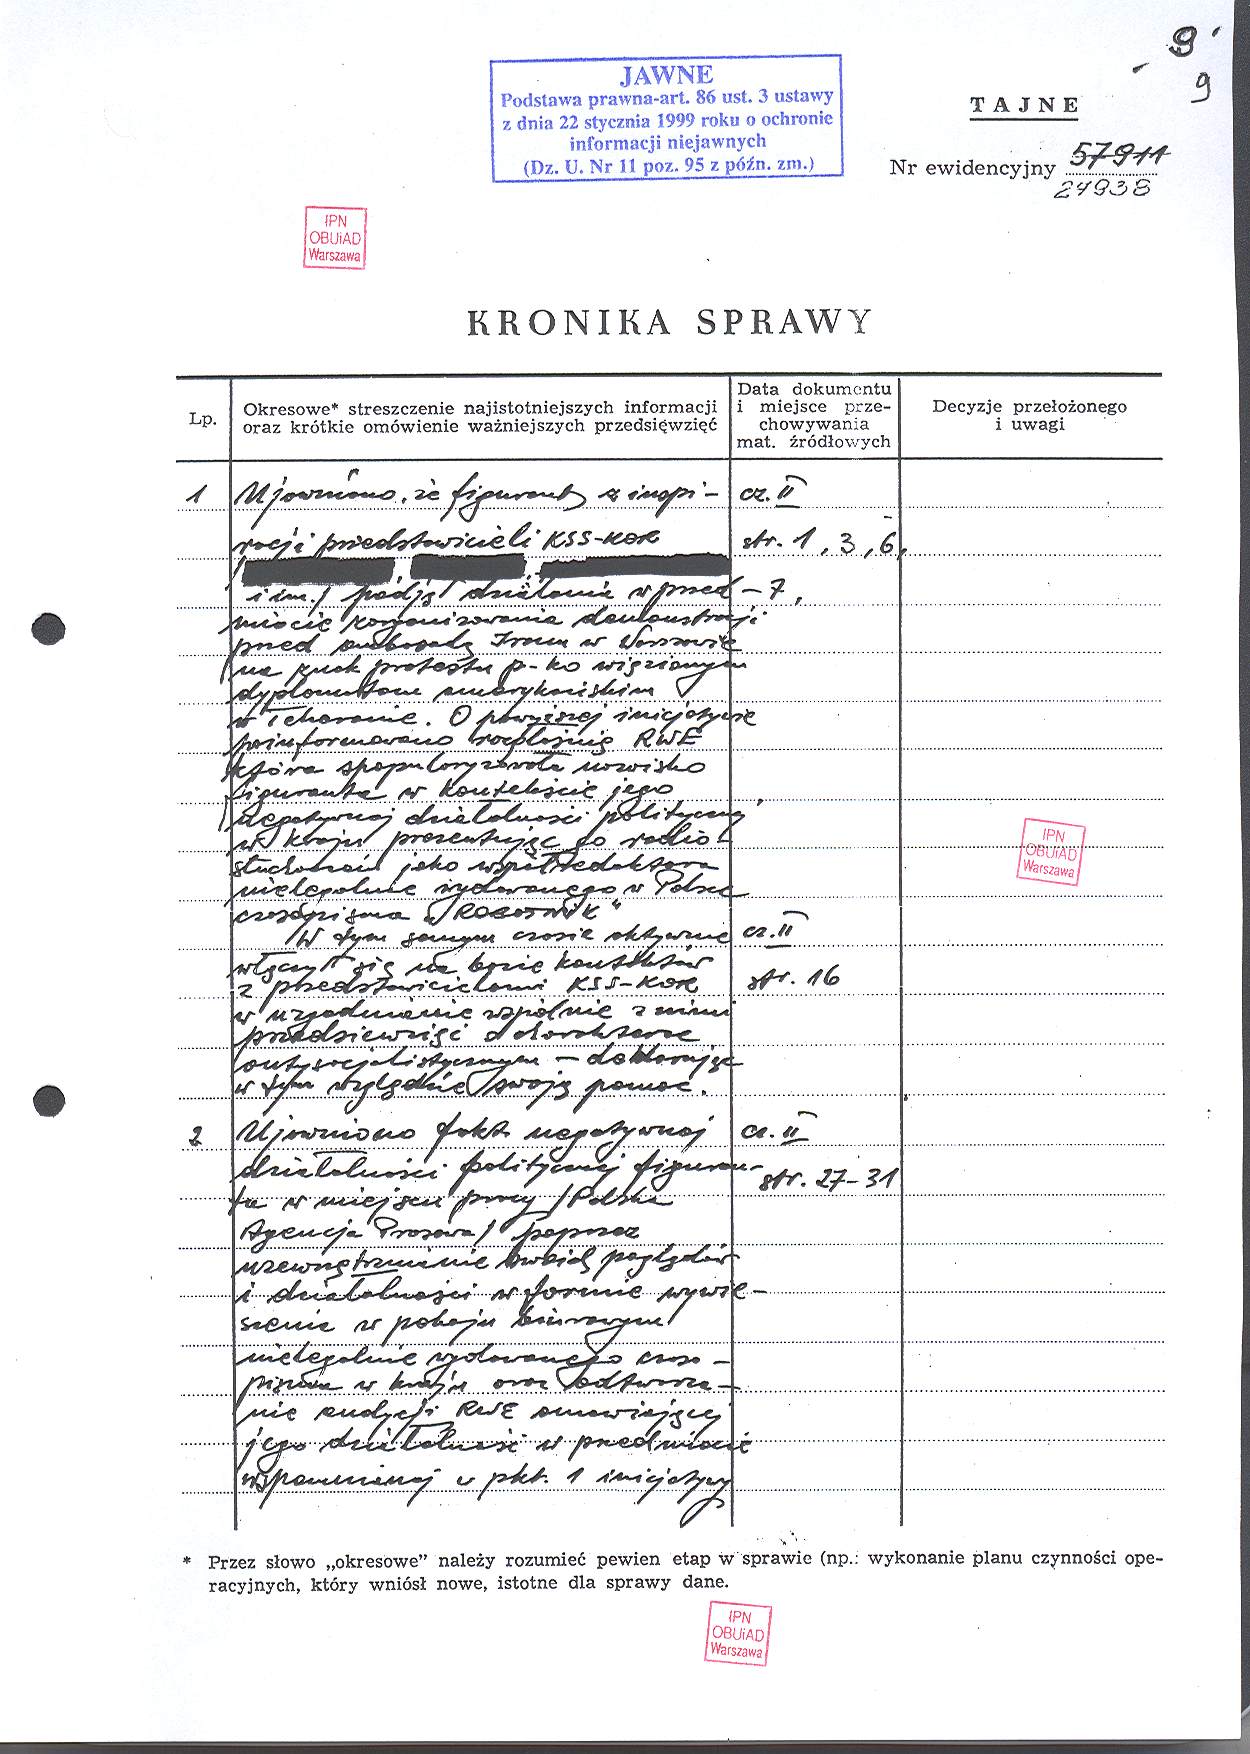 9
9
JAWNE
Podstawa prawna-art. 86 ust. 3 ustawy
z dnia 22 stycznia 1999 roku o ochronie
informacji niejawnych
(Dz. U. Nr 11 poz. 95 z późn. zm.)
TAJNE
Nr ewidencyjny 57911
24938
IPN
OBUiAD
Warszawa
KRONIKA SPRAWY
Lp.
Okresowe* streszczenie najistotniejszych informacji
oraz krótkie omówienie ważniejszych przedsięwzięć
Data dokumentu
i miejsce prze-
chowywania
mat. źródłowych
Decyzje przełożonego
i uwagi
1 Ujawniono, że figurant z inspi- cz. II
racji przedstawicieli KSS-KOR str. 1, 3, 6,
i in./ podjął działania w przed - 7,
miocie zorganizowania demonstracji
przed ambasadą Iranu w Warszawie
na znak protestu p-ko więzionym
dyplomatom amerykańskim
w Teheranie. O powyższej inicjatywie
poinformowano rozgłośnię RWE
która spopularyzowała nazwisko
figuranta w kontekście jego
negatywnej działalności politycznej
w kraju prezentując go radio-
słuchaczom jako współredaktora
nielegalnie wydawanego w Polsce
czasopisma "ROBOTNIK"
W tym samym czasie aktywnie cz. II
włączył się na bazie kontaktów
z przedstawicielami KSS-KOR str. 16
w uzgadnianie wspólnie z nimi
przedsięwzięć o charakterze
antysocjalistycznym - deklarując
w tym względzie swoją pomoc.
2 Ujawniono fakt negatywnej cz. II
działalności politycznej figuran- str. 27-31
ta w miejscu pracy /Polska
Agencja Prasowa/ poprzez
uzewnętrznienie swoich poglądów
i działalności w formie wywie-
szenia w pokoju biurowym
nielegalnie wydawanego czaso-
pisma w kraju oraz odtwarza-
nie audycji RWE omawiającej
jego działalność w przedmiocie
wspomnianej w pkt. 1 inicjatywy
IPN
OBUiAD
Warszawa
* Przez słowo „okresowe” należy rozumieć pewien etap w sprawie (np.: wykonanie planu czynności ope-
racyjnych, który wniósł nowe, istotne dla sprawy dane.
IPN
OBUiAD
Warszawa